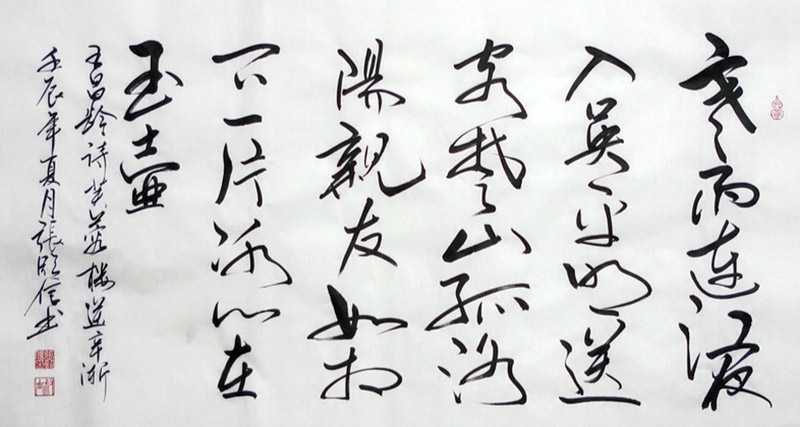 寒雨連江夜
入吳平明送
客楚山孤洛
陽親友如相
问一片冰心在
玉壺
王昌齡詩芙蓉樓送辛渐
壬辰年夏月張信书